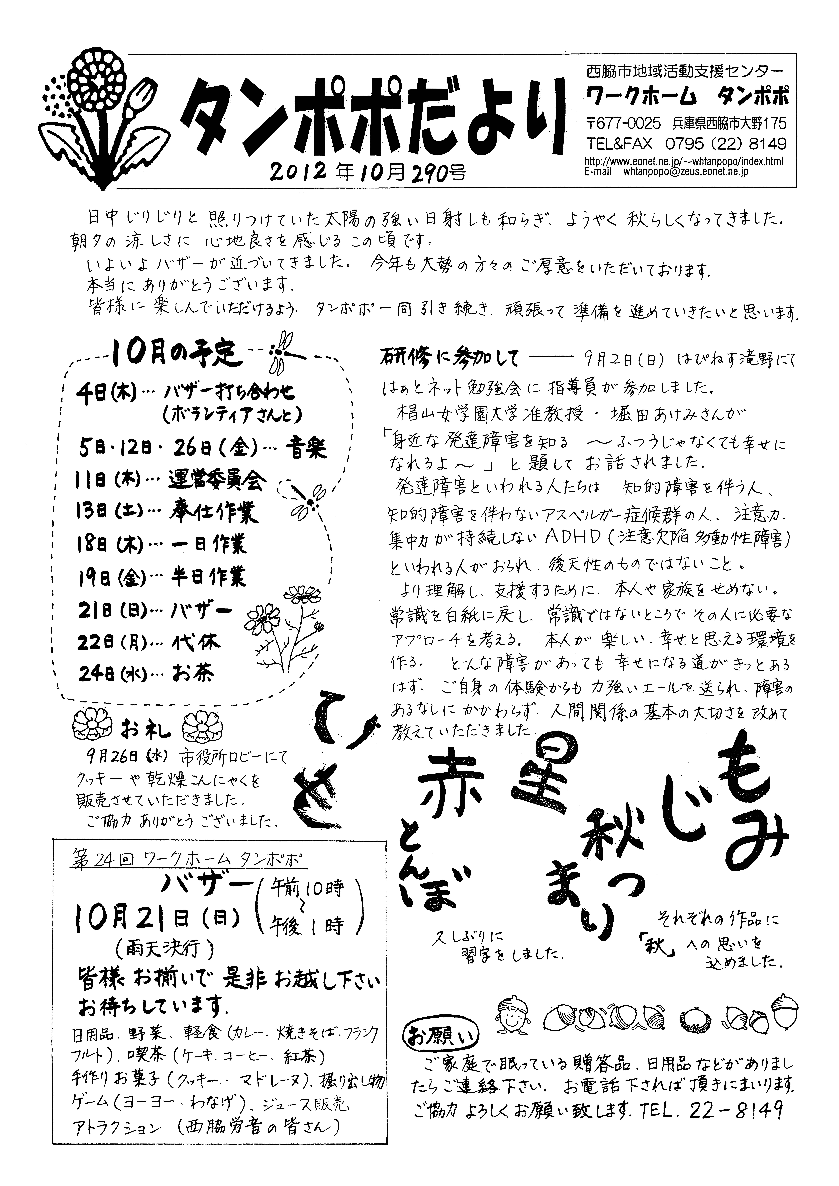 タンポポだより
2012年10月290号
西脇市地域活動支援センター
ワークホーム タンポポ
〒677-0025 兵庫県西脇市大野175
TEL&FAX 0795 (22) 8149
http://www.eonet.ne.jp/~-whtanpopo/index.html
E-mail whtanpopo@zeus.eonet.ne.jp
日中じりじりと照りつけていた太陽の強い日射しも和らぎ、ようやく秋らしくなってきました。
朝夕の涼しさに心地良さを感じるこの頃です。
いよいよバザーが近づいてきました。今年も大勢の方々のご厚意をいただいております。
本当にありがとうございます。
皆様に楽しんでいただけるよう、タンポポ一同引き続き、頑張って準備を進めていきたいと思います。
10月の予定
4日(木)…バザー打ち合わせ
(ボランティアさんと)
5日・12日・26日(金)…音楽
11日(木)…運営委員会
13日(土)…奉仕作業
18日(木)…一日作業
19日(金)…半日作業
21日(日)…バザー
22日(月)…代休
24日(水)…お茶
お礼
9月26日(水)市役所ロビーにて
クッキーや乾燥こんにゃくを
販売させていただきました。
ご協力ありがとうございました。
第24回 ワークホーム タンポポ
バザー(午前10時
~
午後1時)
10月21日(日)
(雨天決行)
皆様お揃いで是非お越し下さい
お待ちしています。
日用品、野菜、軽食(カレー、焼きそば、フランク
フルト)、喫茶(ケーキ、コーヒー、紅茶)
手作りお菓子(クッキー、マドレーヌ)、掘り出し物
ゲーム(ヨーヨー、わなげ)、ジュース販売
アトラクション(西脇労音の皆さん)
研修に参加して ―― 9月2日(日)はぴねす滝野にて
はぁとネット勉強会に指導員が参加しました。
椙山女学園大学准教授・堀田あけみさんが
「身近な発達障害を知る 〜ふつうじゃなくても幸せに
なれるよ〜」と題してお話されました。
発達障害といわれる人たちは 知的障害を伴う人、
知的障害を伴わないアスペルガー症候群の人、注意力、
集中力が持続しないADHD(注意欠陥多動性障害)
といわれる人がおられ、後天性のものではないこと。
より理解し、支援するために、本人や家族をせめない。
常識を白紙に戻し、常識ではないところでその人に必要な
アプローチを考える。本人が楽しい、幸せと思える環境を
作る。どんな障害があっても幸せになる道がきっとある
はず。ご自身の体験からも力強いエールを送られ、障害の
あるなしにかかわらず、人間関係の基本の大切さを改めて
教えていただきました。
もみじ
星
秋まつり
赤とんぼ
久しぶりに
習字をしました。
それぞれの作品に
「秋」への思いを
込めました。
お願い
ご家庭で眠っている贈答品、日用品などがありまし
たらご連絡下さい。お電話下されば頂きにまいります。
ご協力よろしくお願い致します。TEL. 22-8149